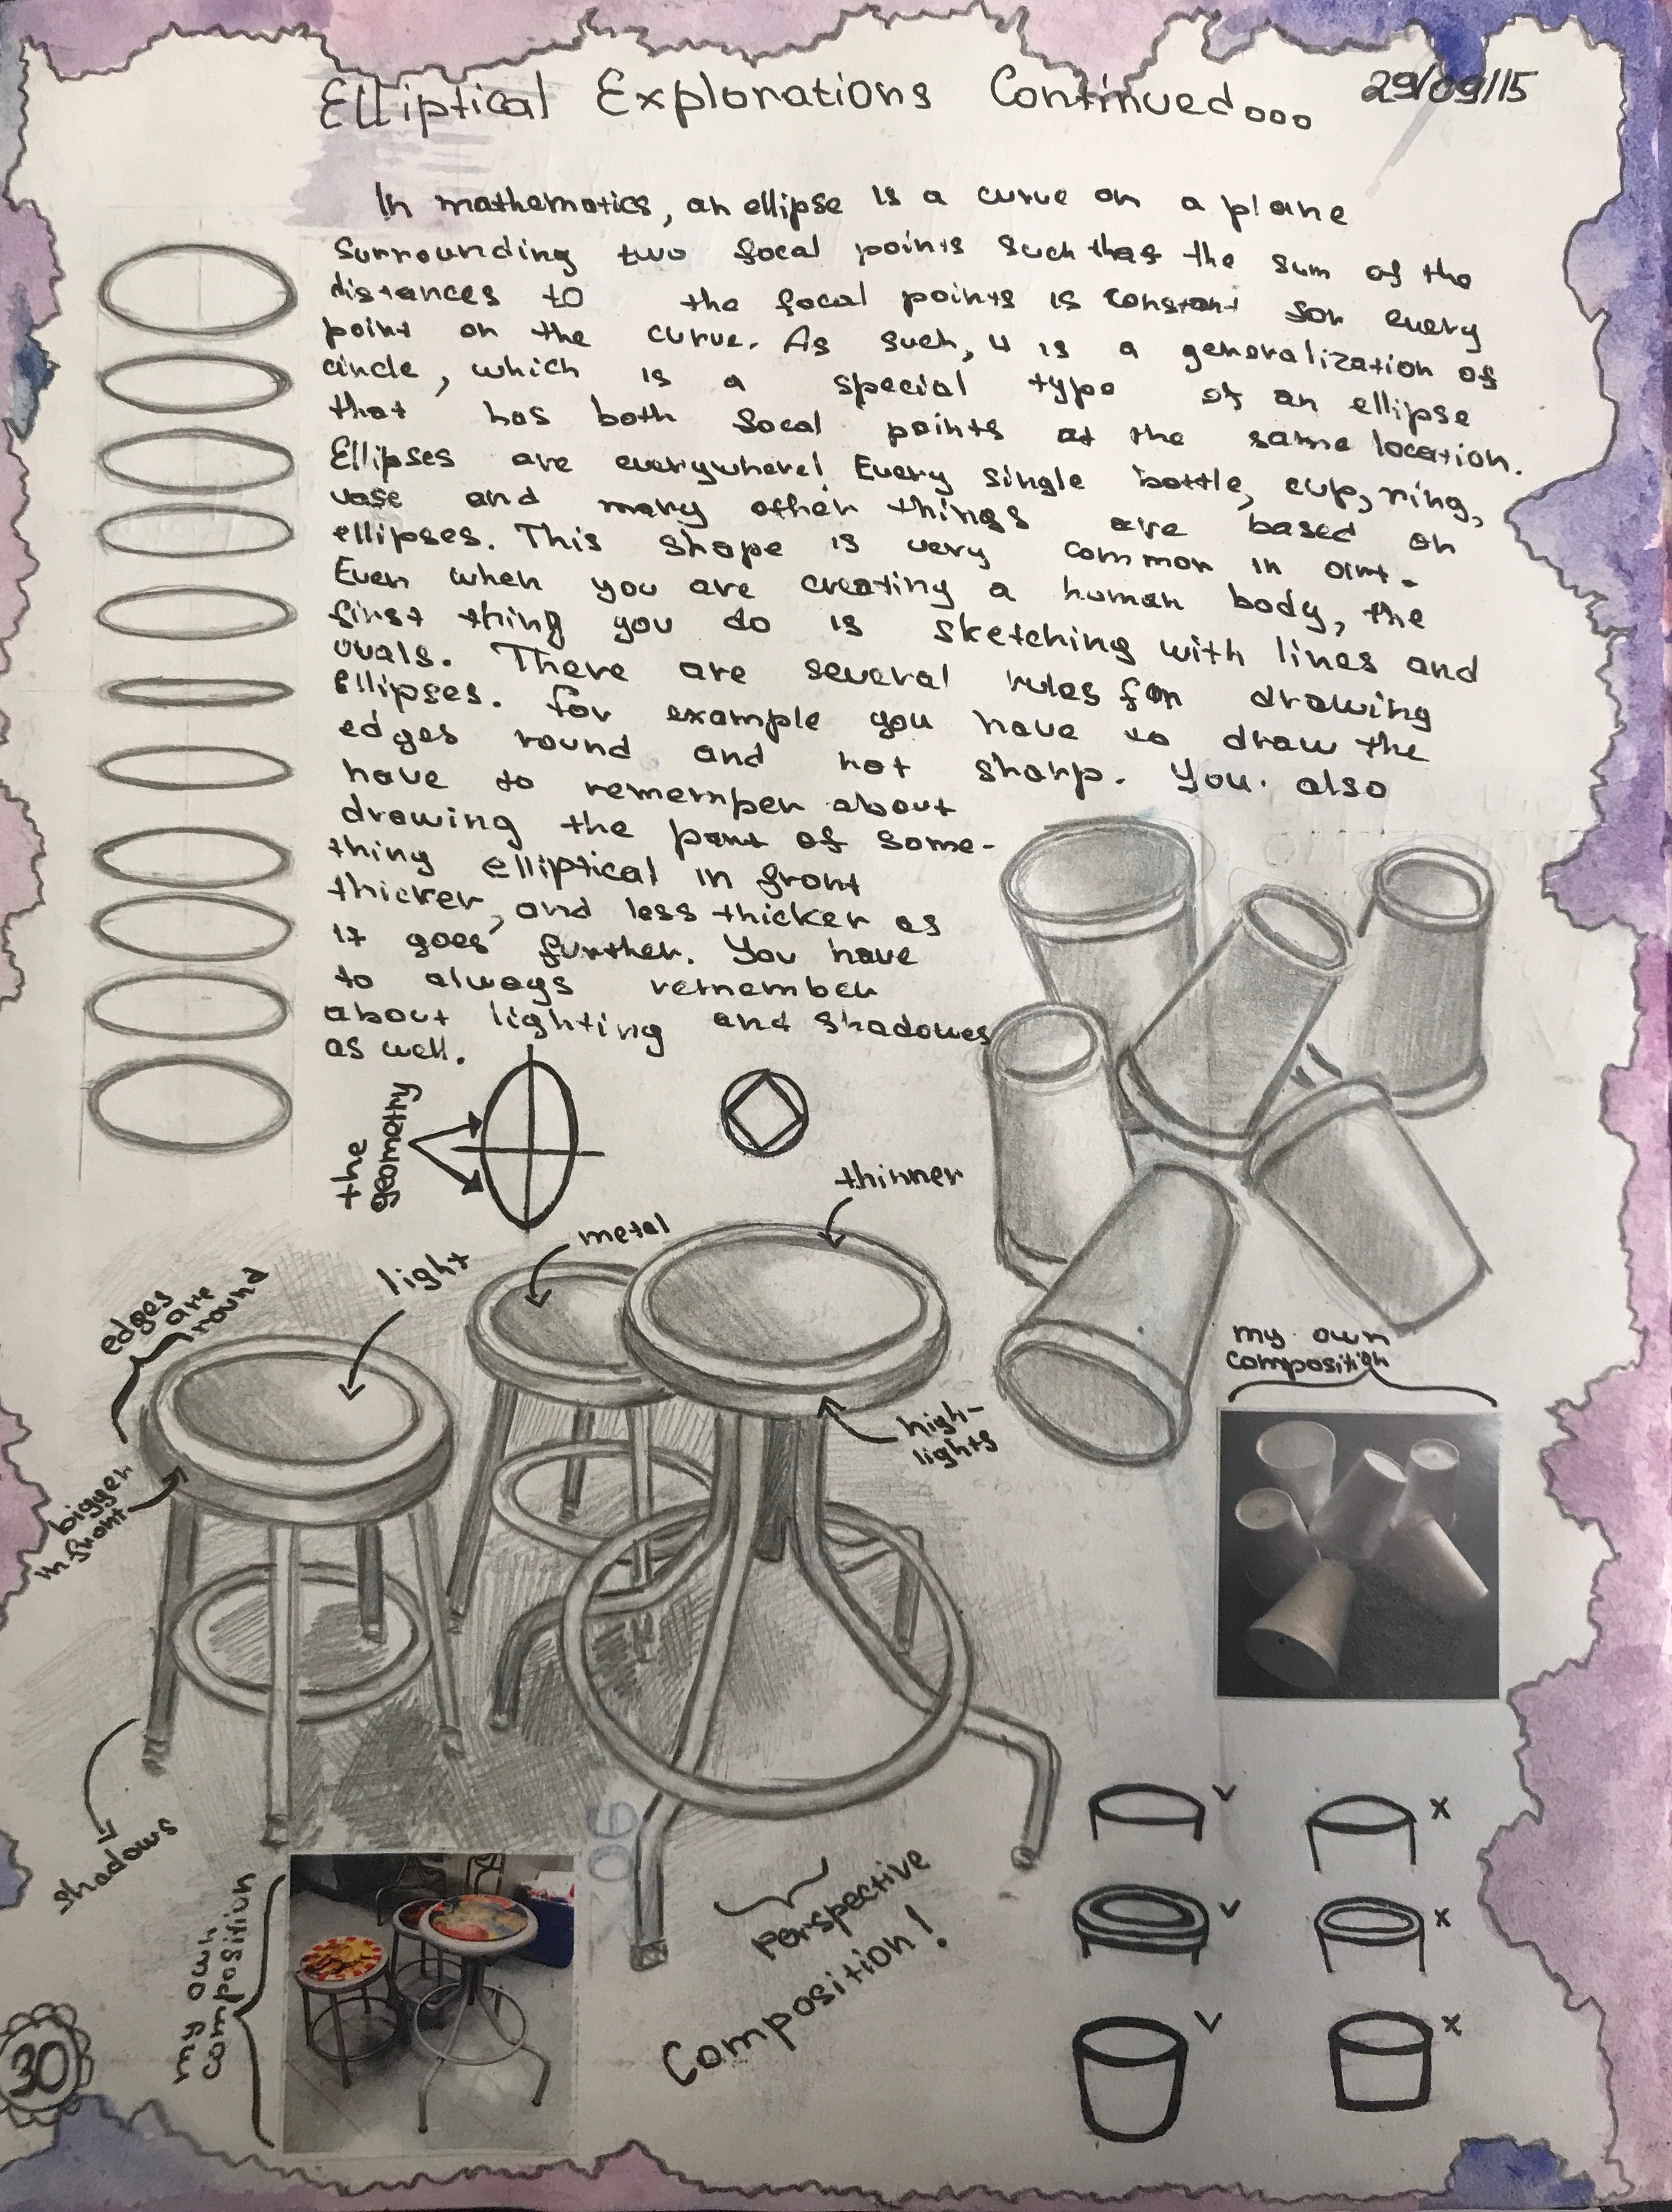 Elliptical Explorations Continued...
29/09/15
In mathematics, an ellipse is a curve on a plane
surrounding two focal points such that the sum of the
distances to the focal points is constant for every
point on the curve. As such, it is a generalization of
circle, which is a special type of an ellipse
that has both focal points at the same location.
Ellipses are everywhere! Every single bottle, cup, ring,
vase and many other things are based on
ellipses. This shape is very common in art.
Even when you are creating a human body, the
first thing you do is sketching with lines and
ovals. There are several rules for drawing
ellipses. For example you have to draw the
edges round and not sharp. You also
have to rememper about
drawing the part of some-
thing elliptical in front
thicker, and less thicker as
it goes further. You have
to always remember
about lighting and shadowes
as well.
the
geometry
thinner
metal
light
edges
are
round
high-
lights
bigger
in front
my own
composition
shadows
my own
composition
perspective
Composition!
V
X
V
X
V
X
30